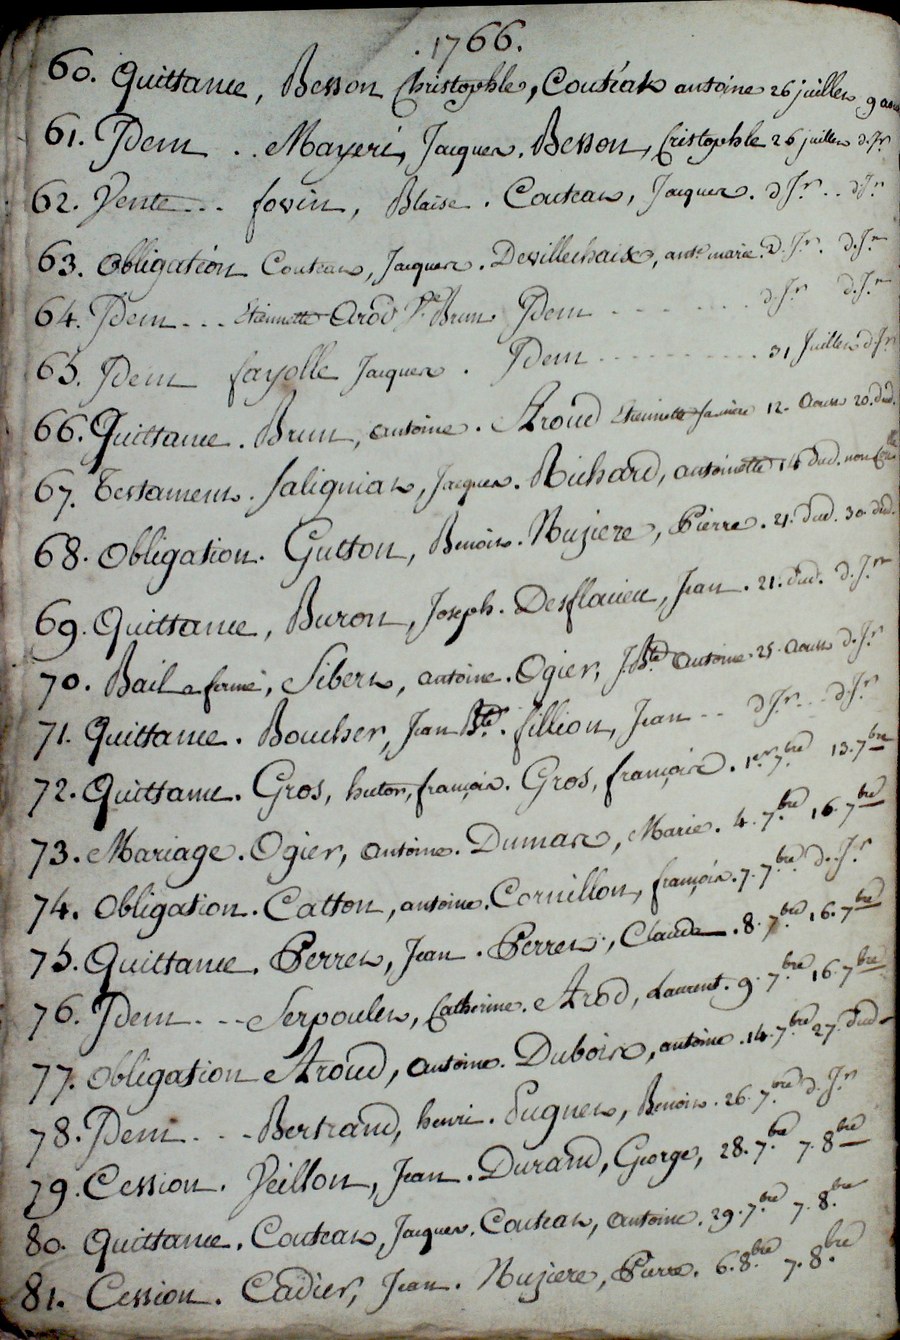 . 1766.
60. Quittance, Besson Christophle, Couteau antoine 26 juillet 9 aout
61. Idem .. Mayeri, Jacques. Besson, Cristophle 26 juillet d. Jr
62. Vente... fovin, Blaise. Couteau, Jacques. d Jr... d Jr
63. Obligation Couteau, Jacques. Devillechaise, ante marie. d. Jr. d. Jr
64. Idem... Etiennette Arod Pre Brun Idem ....... d. Jr d. Jr
65. Idem fayolle Jacques. Idem ........... 31 Juillet d. Jr
66. Quittance. Brun, antoine. Aroud Etiennette 12. Aout 20. dud.
67. Testament. Saligniat, Jacques. Richard, antoinette 14 dud. non
68. Obligation. Gutton, Benoit. Nuziere, Pierre. 21. dud. 30. dud.
69. Quittance, Buron, Joseph. Desflacieu, Jean. 21. dud. d. Jr
70. Bail a ferme, Sibert, antoine. Ogier, J. Bte Antoine. 25. Aout d. Jr
71. Quittance. Boucher, Jean Bte. fillion, Jean .. d Jr... d. Jr
72. Quittance. Gros, huton, françois. Gros, françoise. 1er 7bre 13. 7bre
73. Mariage. Ogier, antoine. Dumas, Marie. 4. 7bre 16. 7bre
74. Obligation. Catton, antoine. Cornillon, françois. 7. 7bre d. Jr
75. Quittance. Perret, Jean. Perret, Claude. 8. 7bre 16. 7bre
76. Idem ... Serpoulet, Catherine. Arod, Laurent. 9. 7bre 16. 7bre
77. Obligation Aroud, Antoine. Dubois, antoine. 14. 7bre 27. dud.
78. Idem ... Bertrand, henri. Eugnet, Benoit. 26. 7bre d. Jr
79. Cession. Veillon, Jean. Durand, George, 28. 7bre 7. 8bre
80. Quittance. Couteau, Jacques. Couteau, Antoine. 29. 7bre 7. 8bre
81. Cession. Cadier, Jean. Nuziere, Pierre. 6. 8bre 7. 8bre